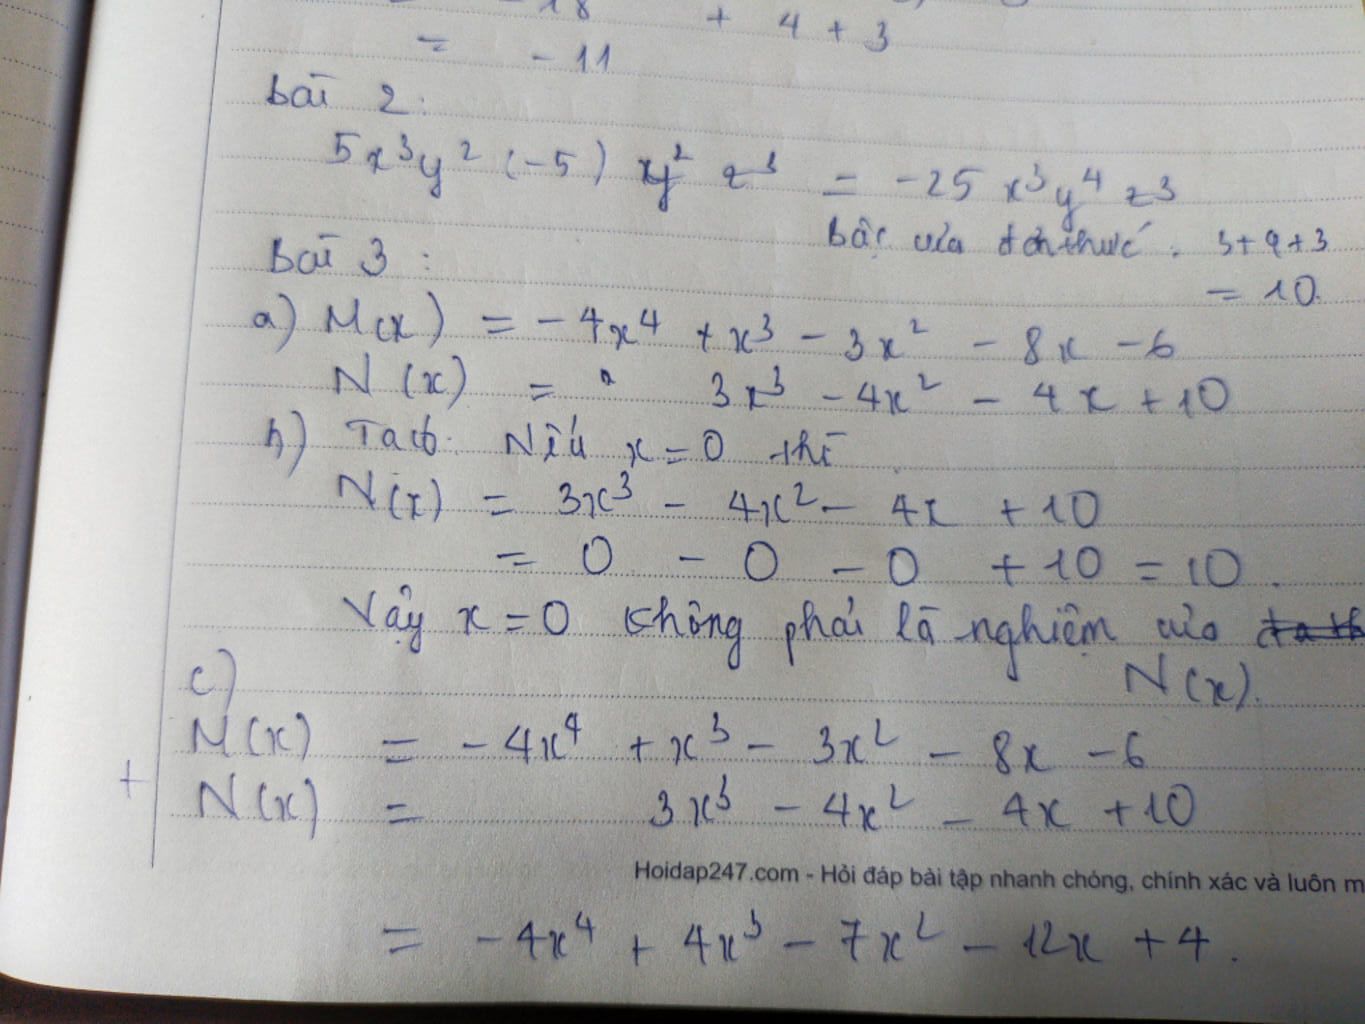 = -18 + 4 + 3
= -11
bài 2:
5x³y² (-5) xy² z³ = -25 x³y⁴ z³
bậc của đơn thức. 3+4+3
= 10.
bài 3:
a) M(x) = -4x⁴ + x³ - 3x² - 8x - 6
N(x) = 3x³ - 4x² - 4x + 10
b) Ta có: Nếu x = 0 thì
N(x) = 3x³ - 4x² - 4x + 10
= 0 - 0 - 0 + 10 = 10.
Vậy x = 0 không phải là nghiệm của
N(x).
c)
M(x) = -4x⁴ + x³ - 3x² - 8x - 6
+
N(x) = 3x³ - 4x² - 4x + 10
Hoidap247.com - Hỏi đáp bài tập nhanh chóng, chính xác và luôn m
= -4x⁴ + 4x³ - 7x² - 12x + 4.